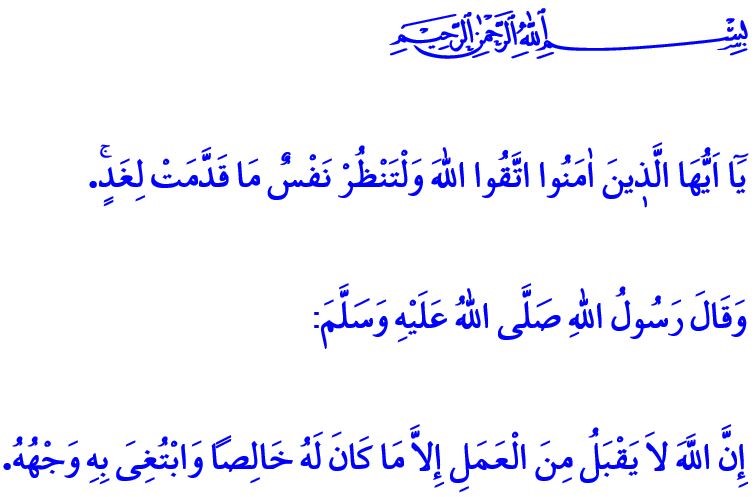 بِسْمِ اللهِ الرَّحْمٰنِ الرَّحِيمِ
يَٓا اَيُّهَا الَّذ۪ينَ اٰمَنُوا اتَّقُوا اللهَ وَلْتَنْظُرْ نَفْسٌ مَا قَدَّمَتْ لِغَدٍۚ.
وَقَالَ رَسُولُ اللهِ صَلَّى اللهُ عَلَيْهِ وَسَلَّمَ:
إِنَّ اللَّهَ لاَ يَقْبَلُ مِنَ الْعَمَلِ إِلاَّ مَا كَانَ لَهُ خَالِصًا وَابْتُغِىَ بِهِ وَجْهُهُ.